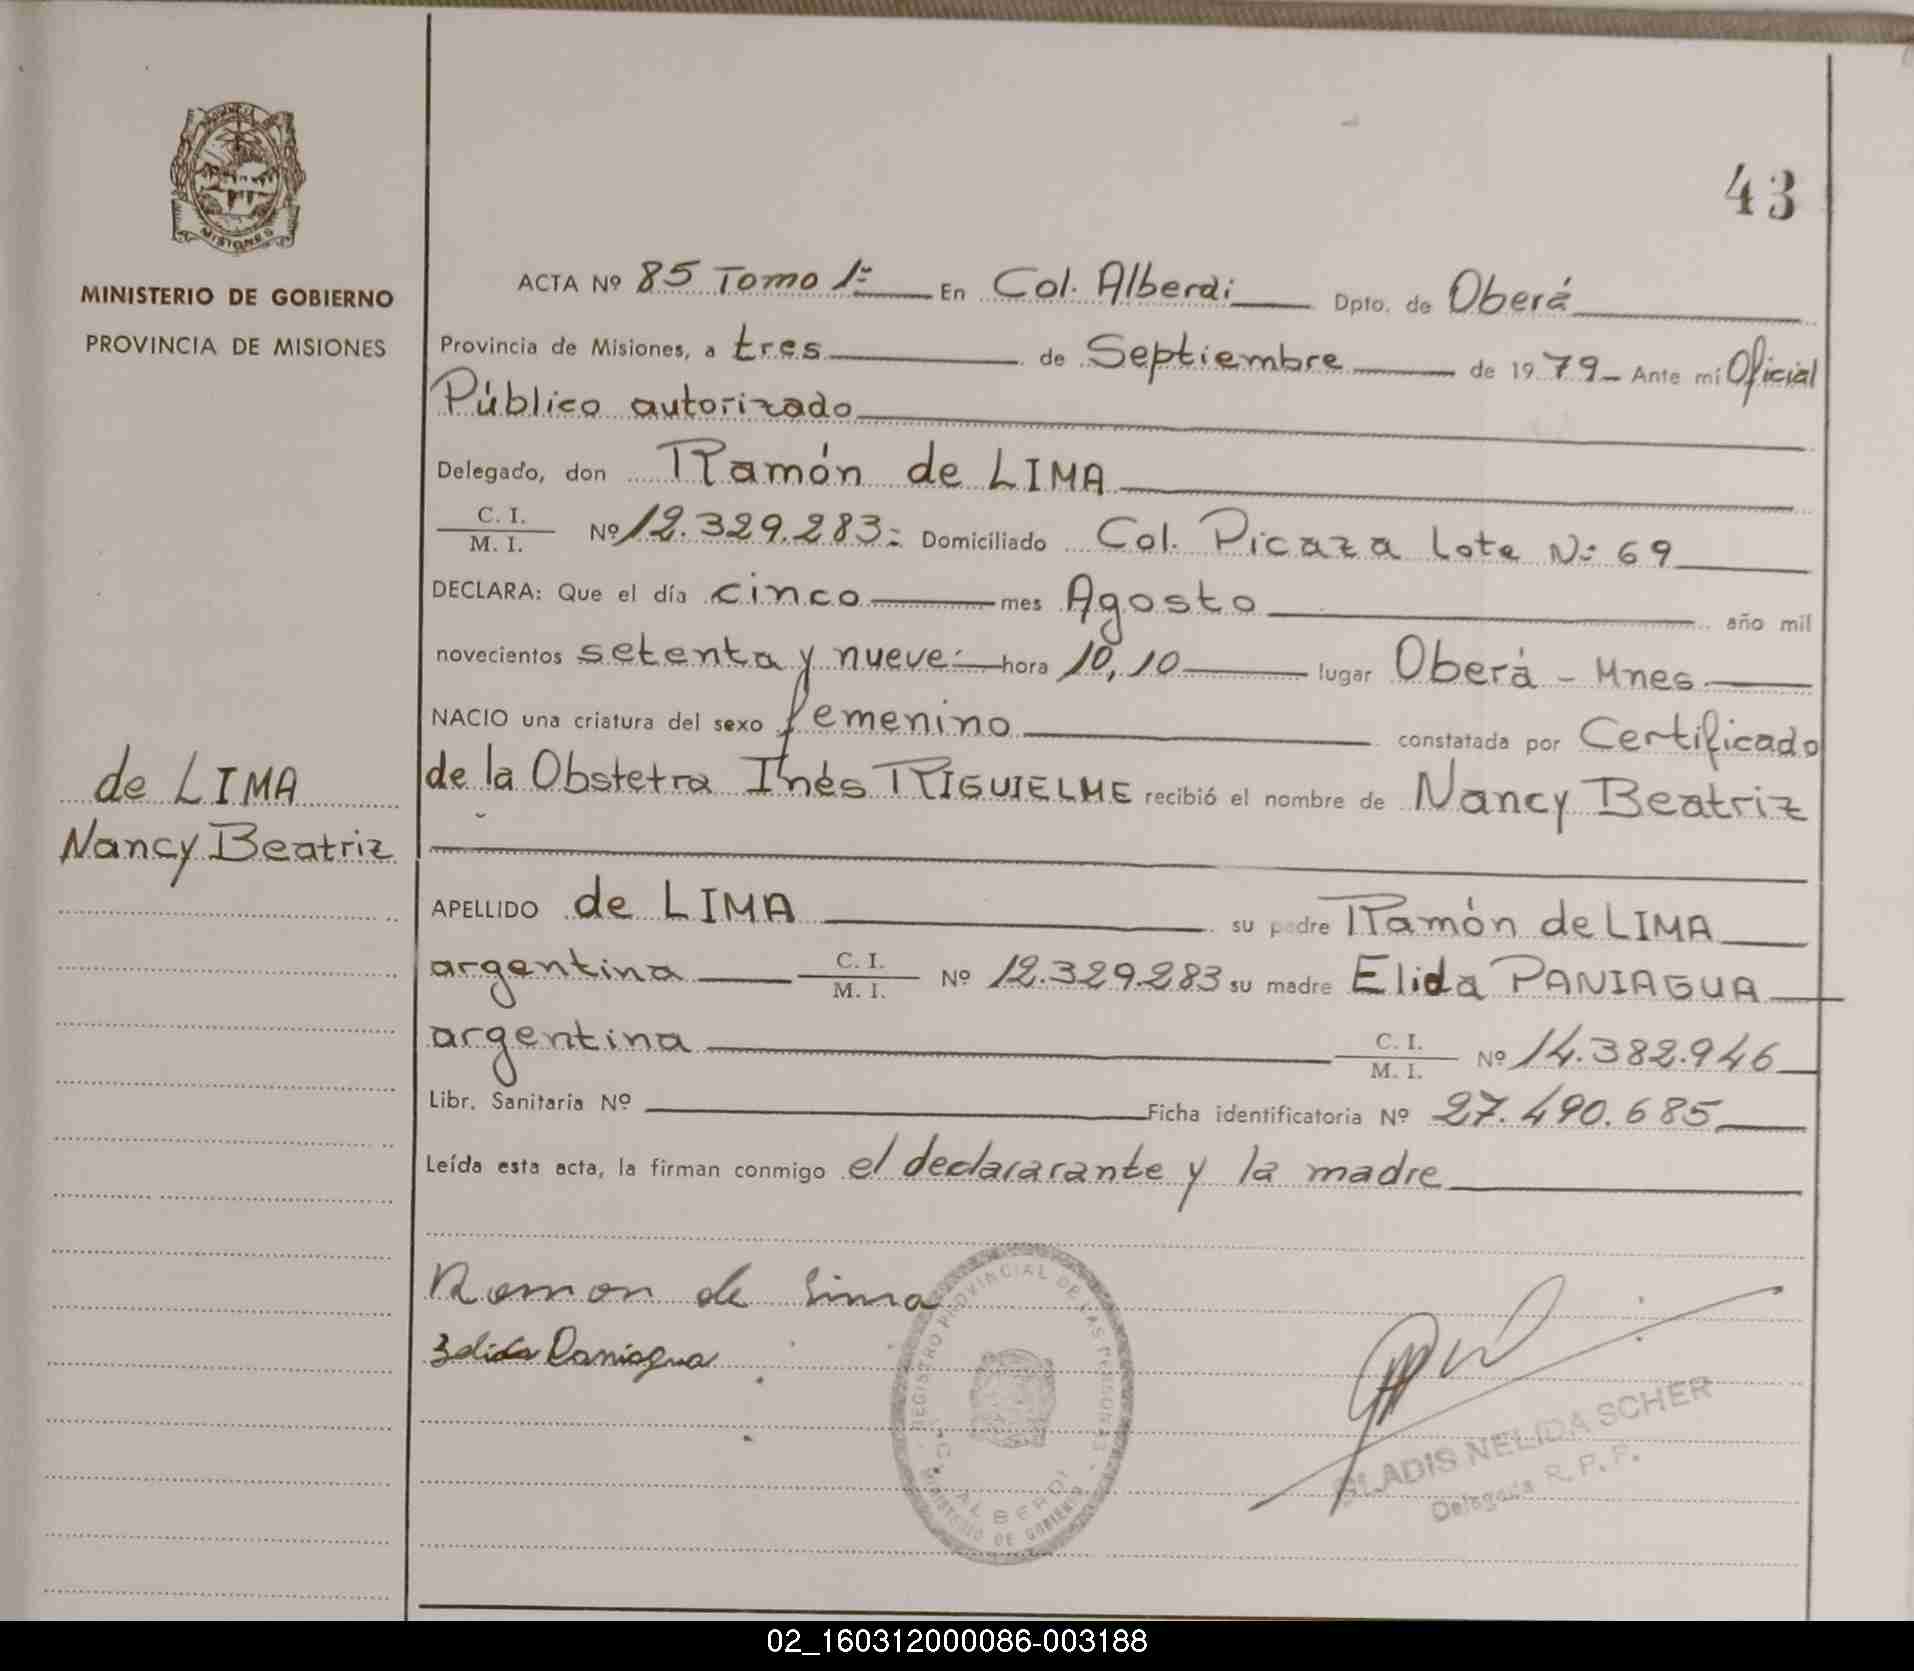 MISIONES
MINISTERIO DE GOBIERNO
PROVINCIA DE MISIONES
43
ACTA Nº 85 Tomo 1º En Col. Alberdi Dpto. de Oberá
Provincia de Misiones, a tres de Septiembre de 1979 Ante mi Oficial
Público autorizado
Delegado, don Ramón de LIMA
C. I.
M. I. Nº 12.329.283 Domiciliado Col. Picaza Lote Nº 69
DECLARA: Que el día cinco mes Agosto año mil
novecientos setenta y nueve hora 10,10 lugar Oberá - Mnes
NACIO una criatura del sexo femenino constatada por Certificado
de la Obstetra Inés RIGUIELME recibió el nombre de Nancy Beatriz
de LIMA
Nancy Beatriz
APELLIDO de LIMA su padre Ramón de LIMA
argentina C. I.
M. I. Nº 12.329.283 su madre Elida PANIAGUA
argentina C. I.
M. I. Nº 14.382.946
Libr. Sanitaria Nº Ficha identificatoria Nº 27.490.685
Leída esta acta, la firman conmigo el declararante y la madre
Ramon de Lima
Paniagua
REGISTRO PROVINCIAL DE LAS PERSONAS
ALBERDI
MINISTERIO DE GOBIERNO
GLADIS NELIDA SCHER
Delegada R. P. P.
02_160312000086-003188